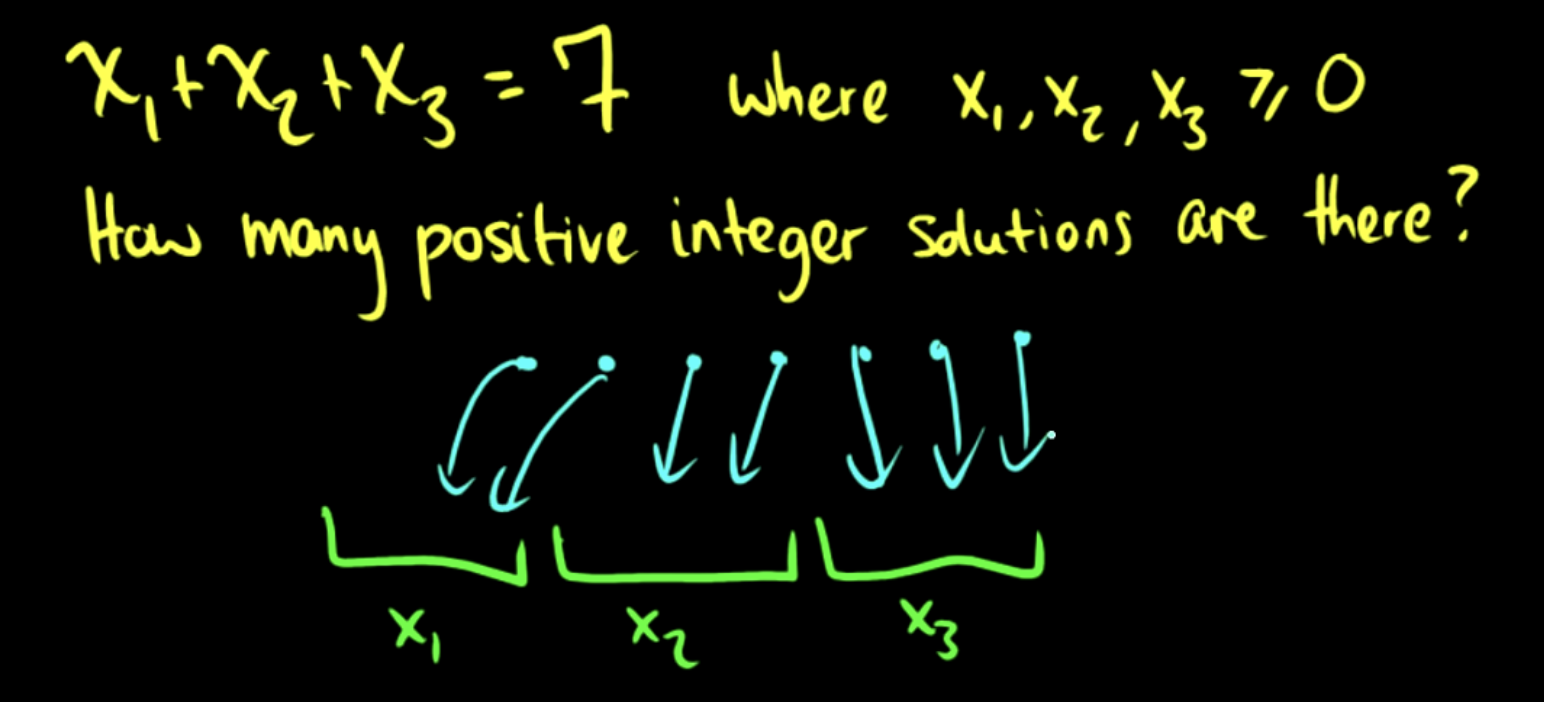 x₁+x₂+x₃=7 where x₁,x₂,x₃ ⩾ 0
How many positive integer solutions are there?
x₁ x₂ x₃